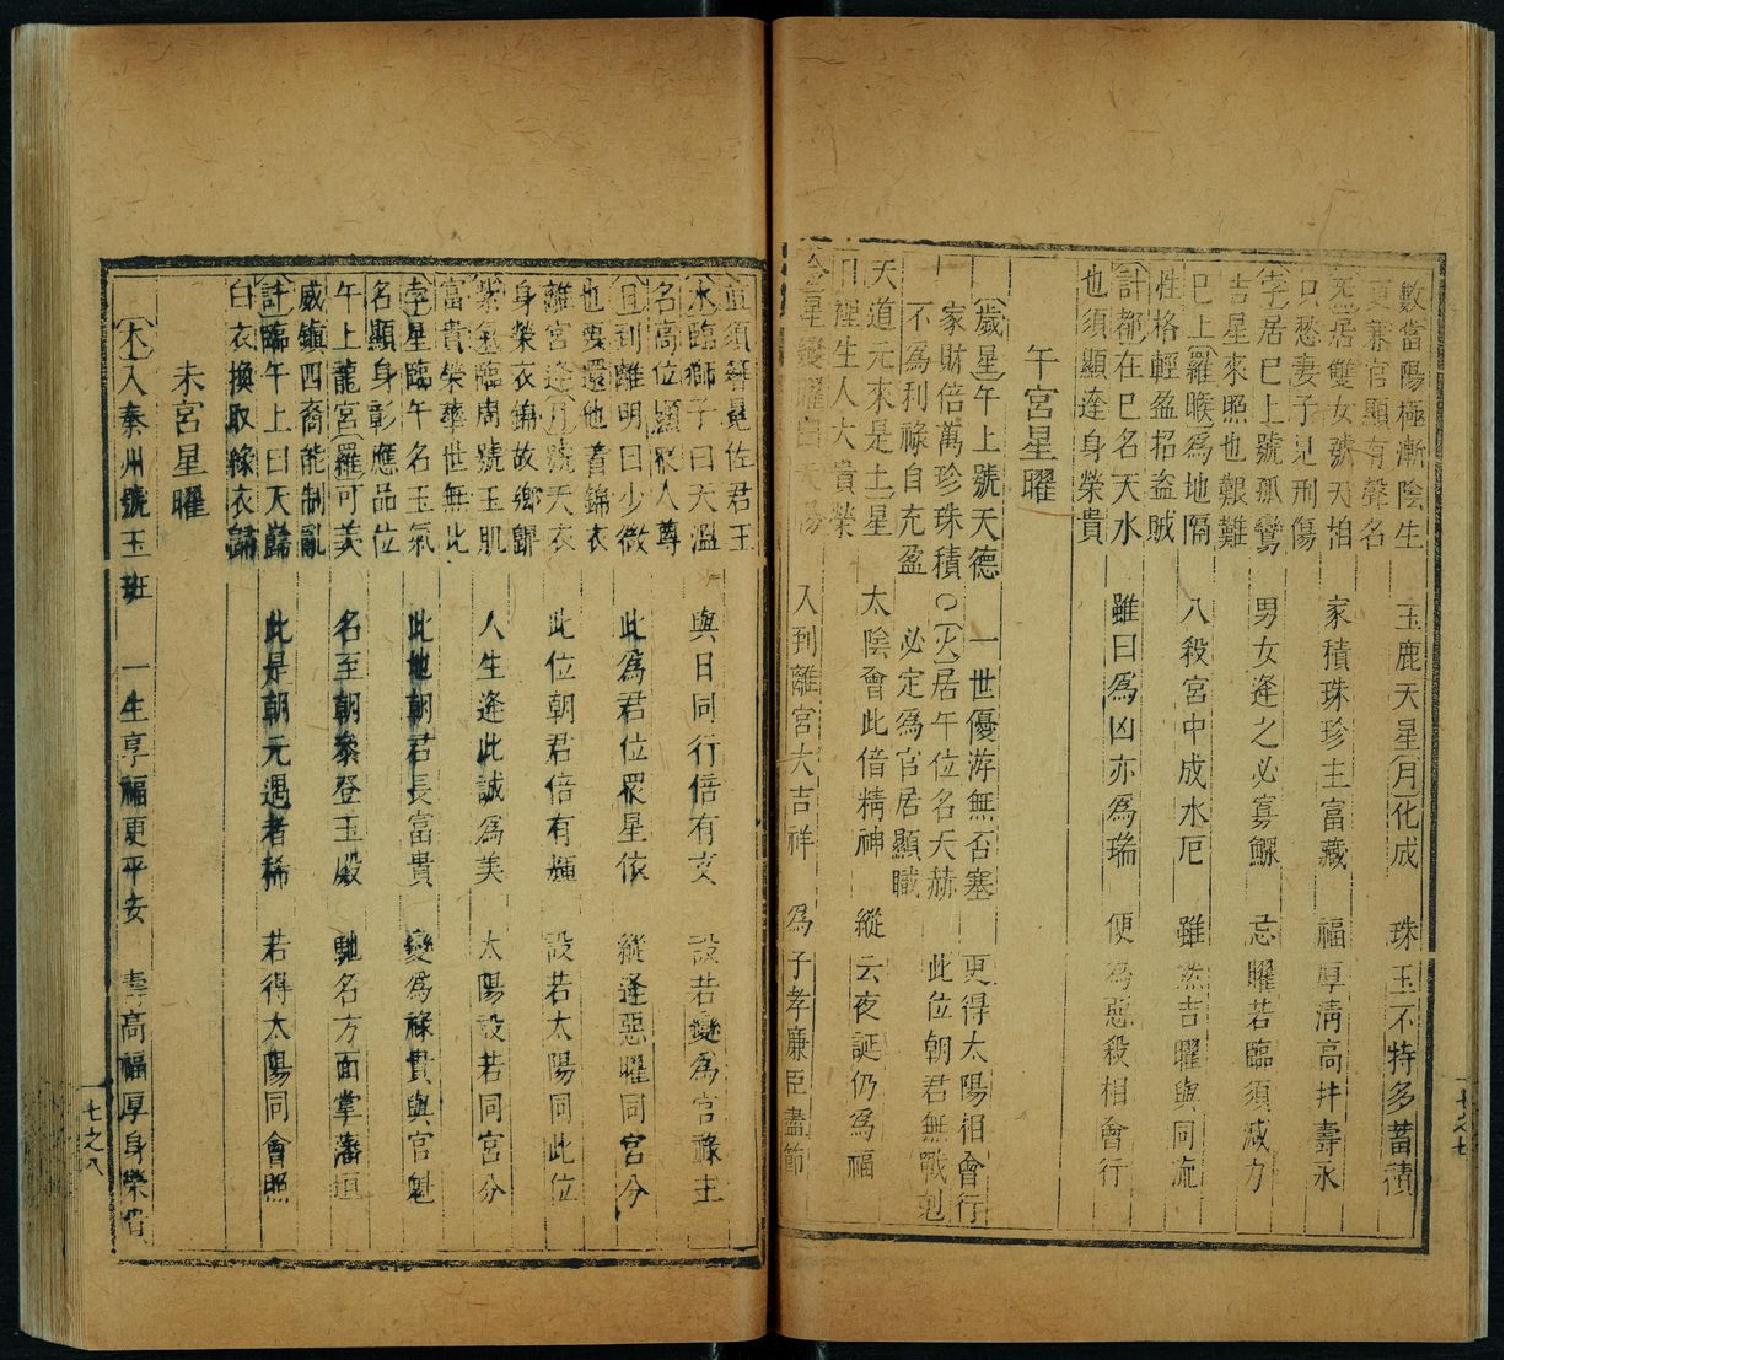 數當陽極漸陰生　玉鹿天星月化成　珠玉不特多蓄積
兼官顯有聲名
炁居雙女號天　家積珠珍主富藏　福厚清高并壽永
只愁妻子見刑傷
孛居巳上號孤鸞　男女逢之必寡鰥　忌曜若臨須减力
吉星來照也艱難
巳上羅㬋為地隔　八殺宮中成水厄　雖然吉曜與同㳅
性格輕盈招盜賊
計都在巳名天水　雖曰爲凶亦爲瑞　便爲惡殺相會行
也須顯達身榮貴
午宮星曜
歲星午上號天德　一世優游無否塞　更得太陽相會行
家財倍萬珍珠積○火居午位名天赫　此位朝君無戰剋
不爲利祿自充盈　必定爲官居顯職
天道元來是土星　太陰會此倍精神　縱云夜誕仍爲福
裡生人大貴榮
入到離宮大吉祥　爲子孝廉臣盡節
須佐君王
水臨獅子曰天溫　與日同行倍有文　設若變爲官祿主
名高位顯衆人尊
日到離明曰少微　此爲君位眾星依　縱逢惡曜同宮分
也要還他着錦衣
離宮逢月號天衣　此位朝君倍有輝　設若太陽同此位
身榮衣錦故鄉歸
紫氣臨周號玉肌　人生逢此誠爲美　太陽設若同宮分
富貴榮華世無此
孛星臨午名玉氣　此地朝君長富貴　變爲祿貴與官魁
名顯身彰應品位
午上龍宮羅可美　名至朝叅登玉殿　馳名方面掌藩垣
威鎭四裔能制亂
計臨午上曰天歸　此是朝元遇者稀　若得太陽同會照
白衣換取綠衣歸
未宮星曜
木入秦州號玉班　一生享福更平安　壽高福厚身榮
七之八